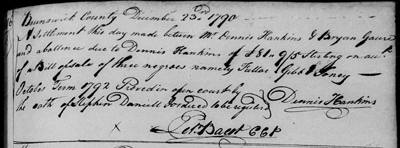 Brunswick County December 23rd 1790
A Settlement this day made between Mr. Dennis Hankins & Bryan
and a ballance due to Dennis Hankins of £81.9/5 Sterling on acct.
of a Bill of sale of three negroes namely Fuller Gibb & Toney
October Term 1792 Proved in open court by
the oath of Stephen Daniell & ordered to be registered
Dennis Hankins